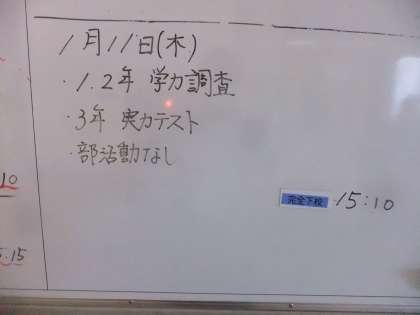 1月11日(木)
・1.2年 学力調査
・3年 実力テスト
・部活動なし
完全下校 15:10
10
5.15